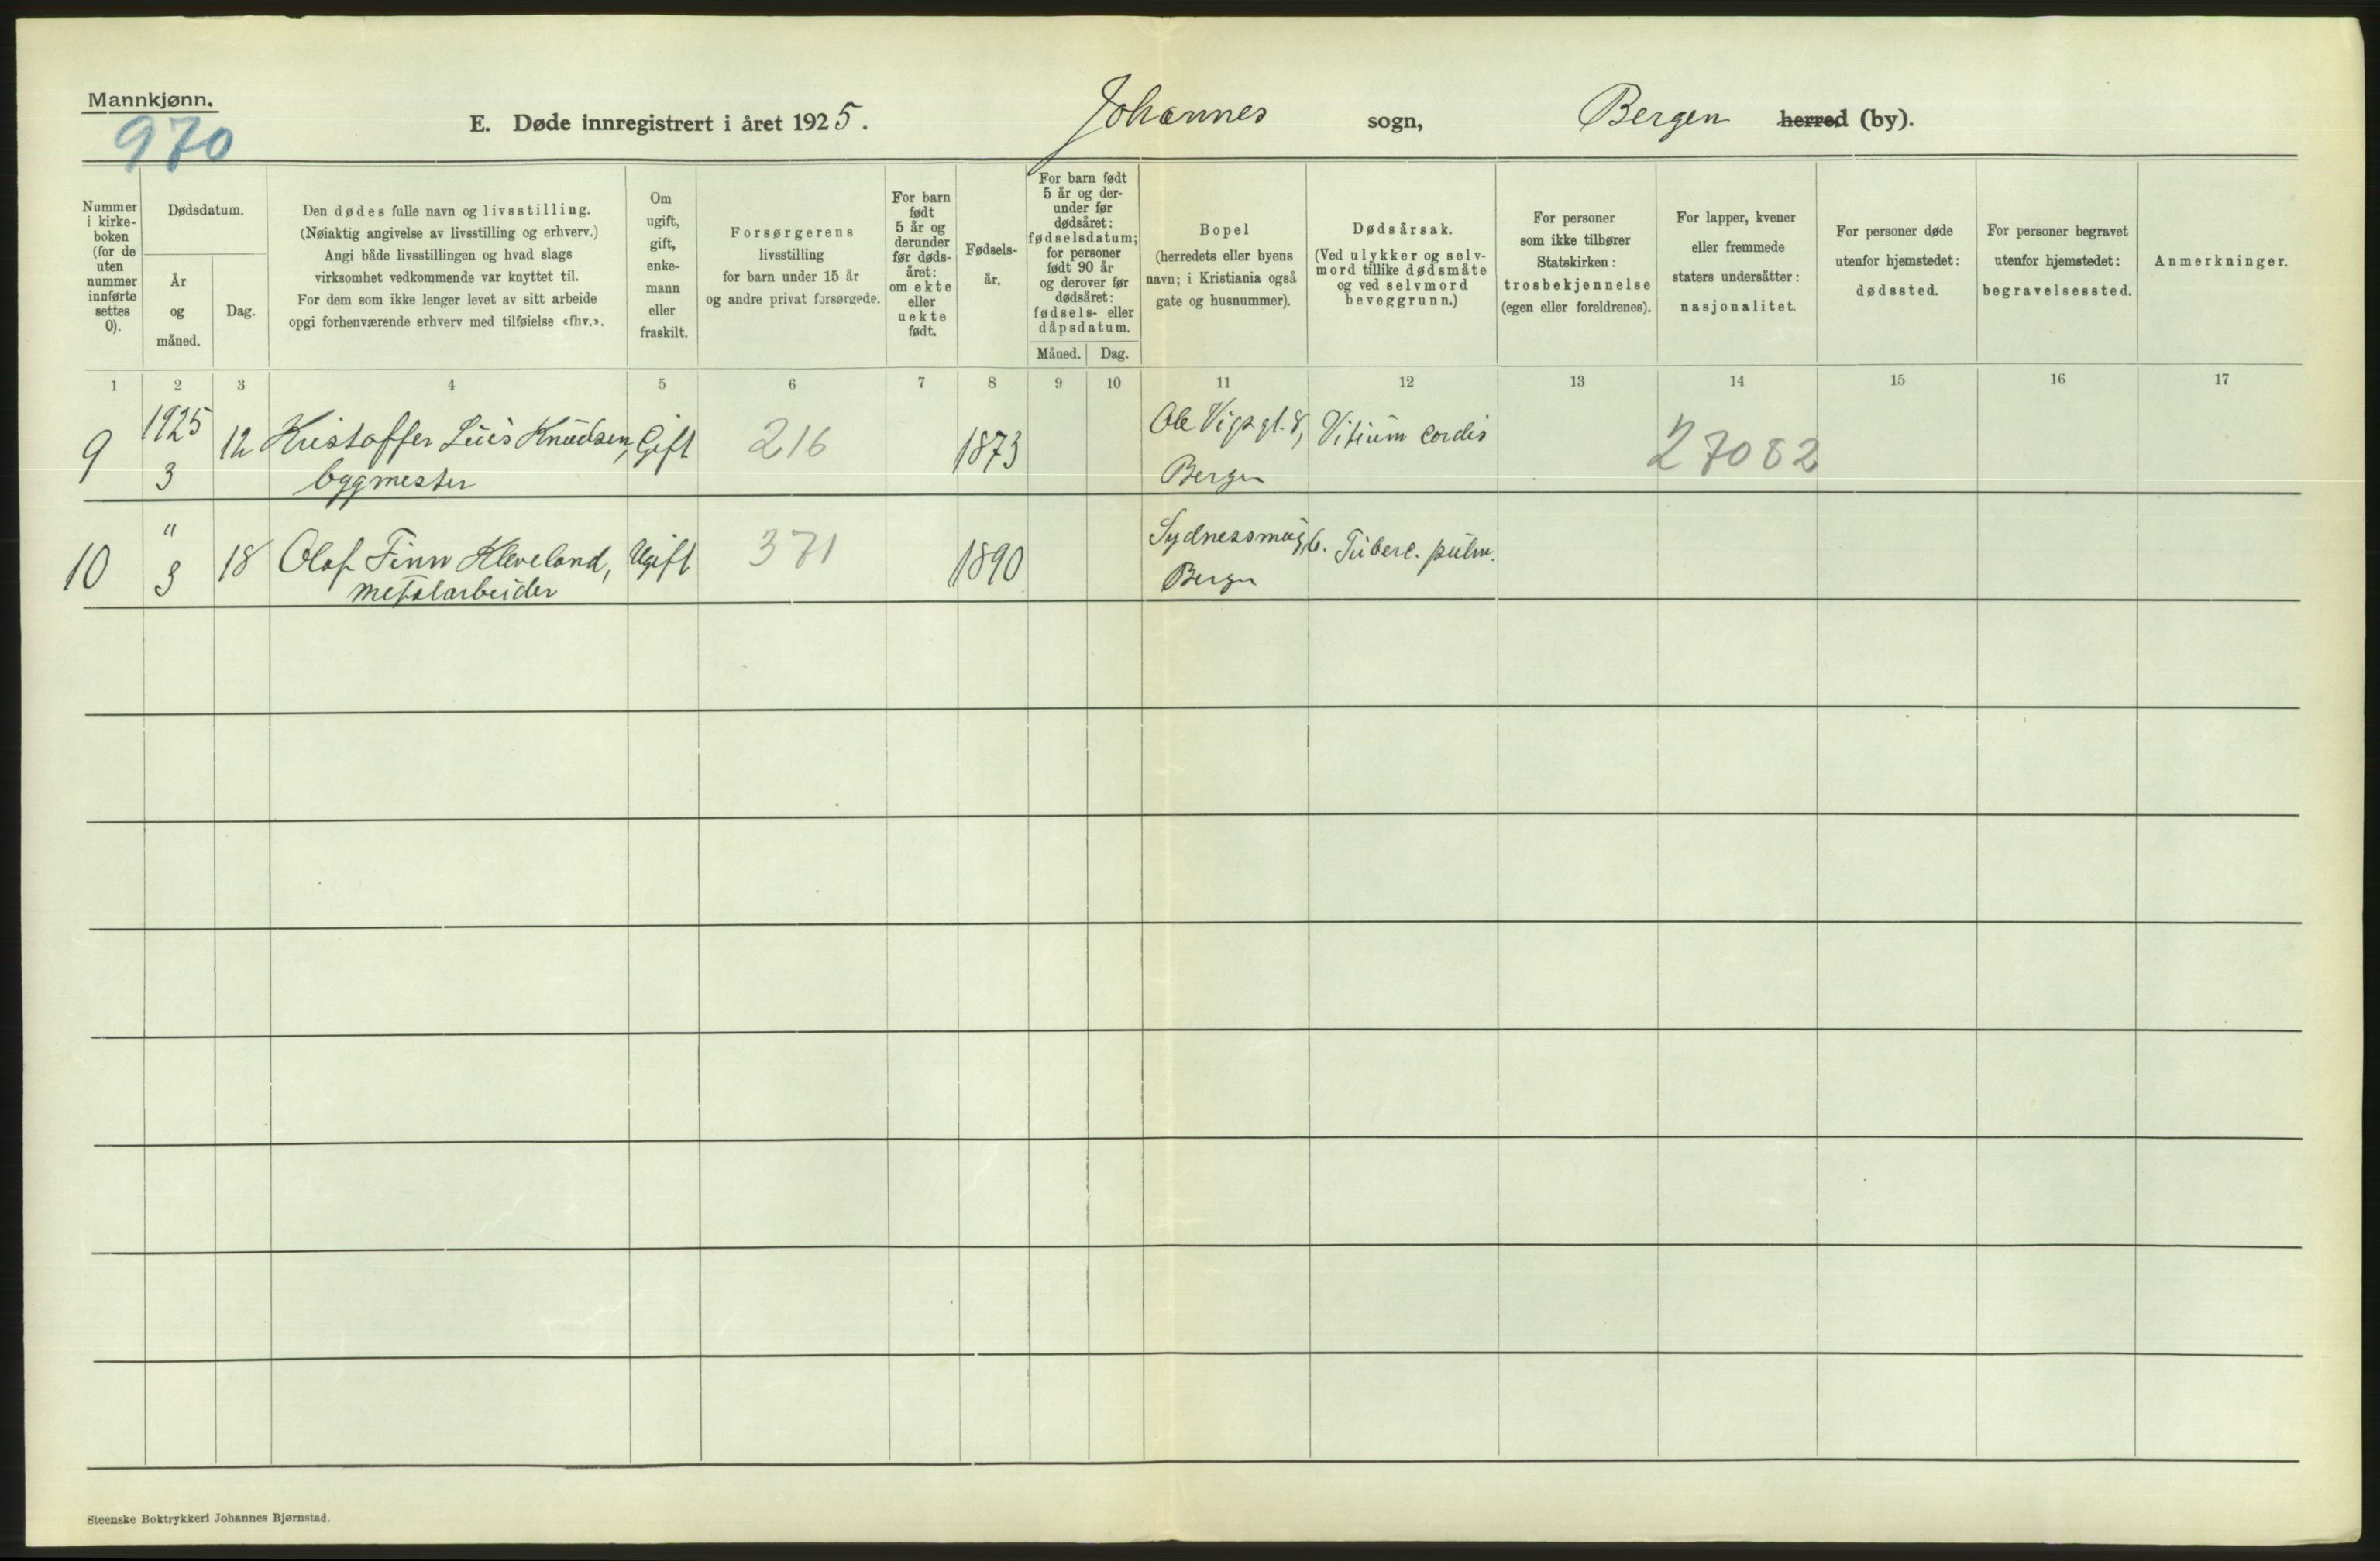 Mannkjønn.
970
E. Døde innregistrert i året 1925.
Johannes sogn,
Bergen herred (by).
Nummer
i kirke-
boken
(for de
uten
nummer
innførte
settes
0).
Dødsdatum.
År
og
måned.
Dag.
Den dødes fulle navn og livsstilling.
(Nøiaktig angivelse av livsstilling og erhverv.)
Angi både livsstillingen og hvad slags
virksomhet vedkommende var knyttet til.
For dem som ikke lenger levet av sitt arbeide
opgi forhenværende erhverv med tilføielse «fhv.».
Om
ugift,
gift,
enke-
mann
eller
fraskilt.
Forsørgerens
livsstilling
for barn under 15 år
og andre privat forsørgede.
For barn
født
5 år og
derunder
før døds-
året:
om ekte
eller
uekte
født.
Fødsels-
år.
For barn født
5 år og der-
under før
dødsåret:
fødselsdatum;
for personer
født 90 år
og derover før
dødsåret:
fødsels- eller
dåpsdatum.
Måned. Dag.
Bopel
(herredets eller byens
navn; i Kristiania også
gate og husnummer).
Dødsårsak.
(Ved ulykker og selv-
mord tillike dødsmåte
og ved selvmord
beveggrunn.)
For personer
som ikke tilhører
Statskirken:
trosbekjennelse
(egen eller foreldrenes).
For lapper, kvener
eller fremmede
staters undersåtter:
nasjonalitet.
For personer døde
utenfor hjemstedet:
dødssted.
For personer begravet
utenfor hjemstedet:
begravelsessted.
Anmerkninger.
1 2 3 4 5 6 7 8 9 10 11 12 13 14 15 16 17
9 1925 12 Kristoffer Luis Knudsen, Gift 216 1873 Ole Vigs gt. 8, Vitium cordis 27082
3 byggmester Bergen
10 " 18 Olaf Finn Kleveland, Ugift 371 1890 Sydnessmug 6. Tuberc. pulm.
3 metalarbeider Bergen
Steenske Boktrykkeri Johannes Bjørnstad.